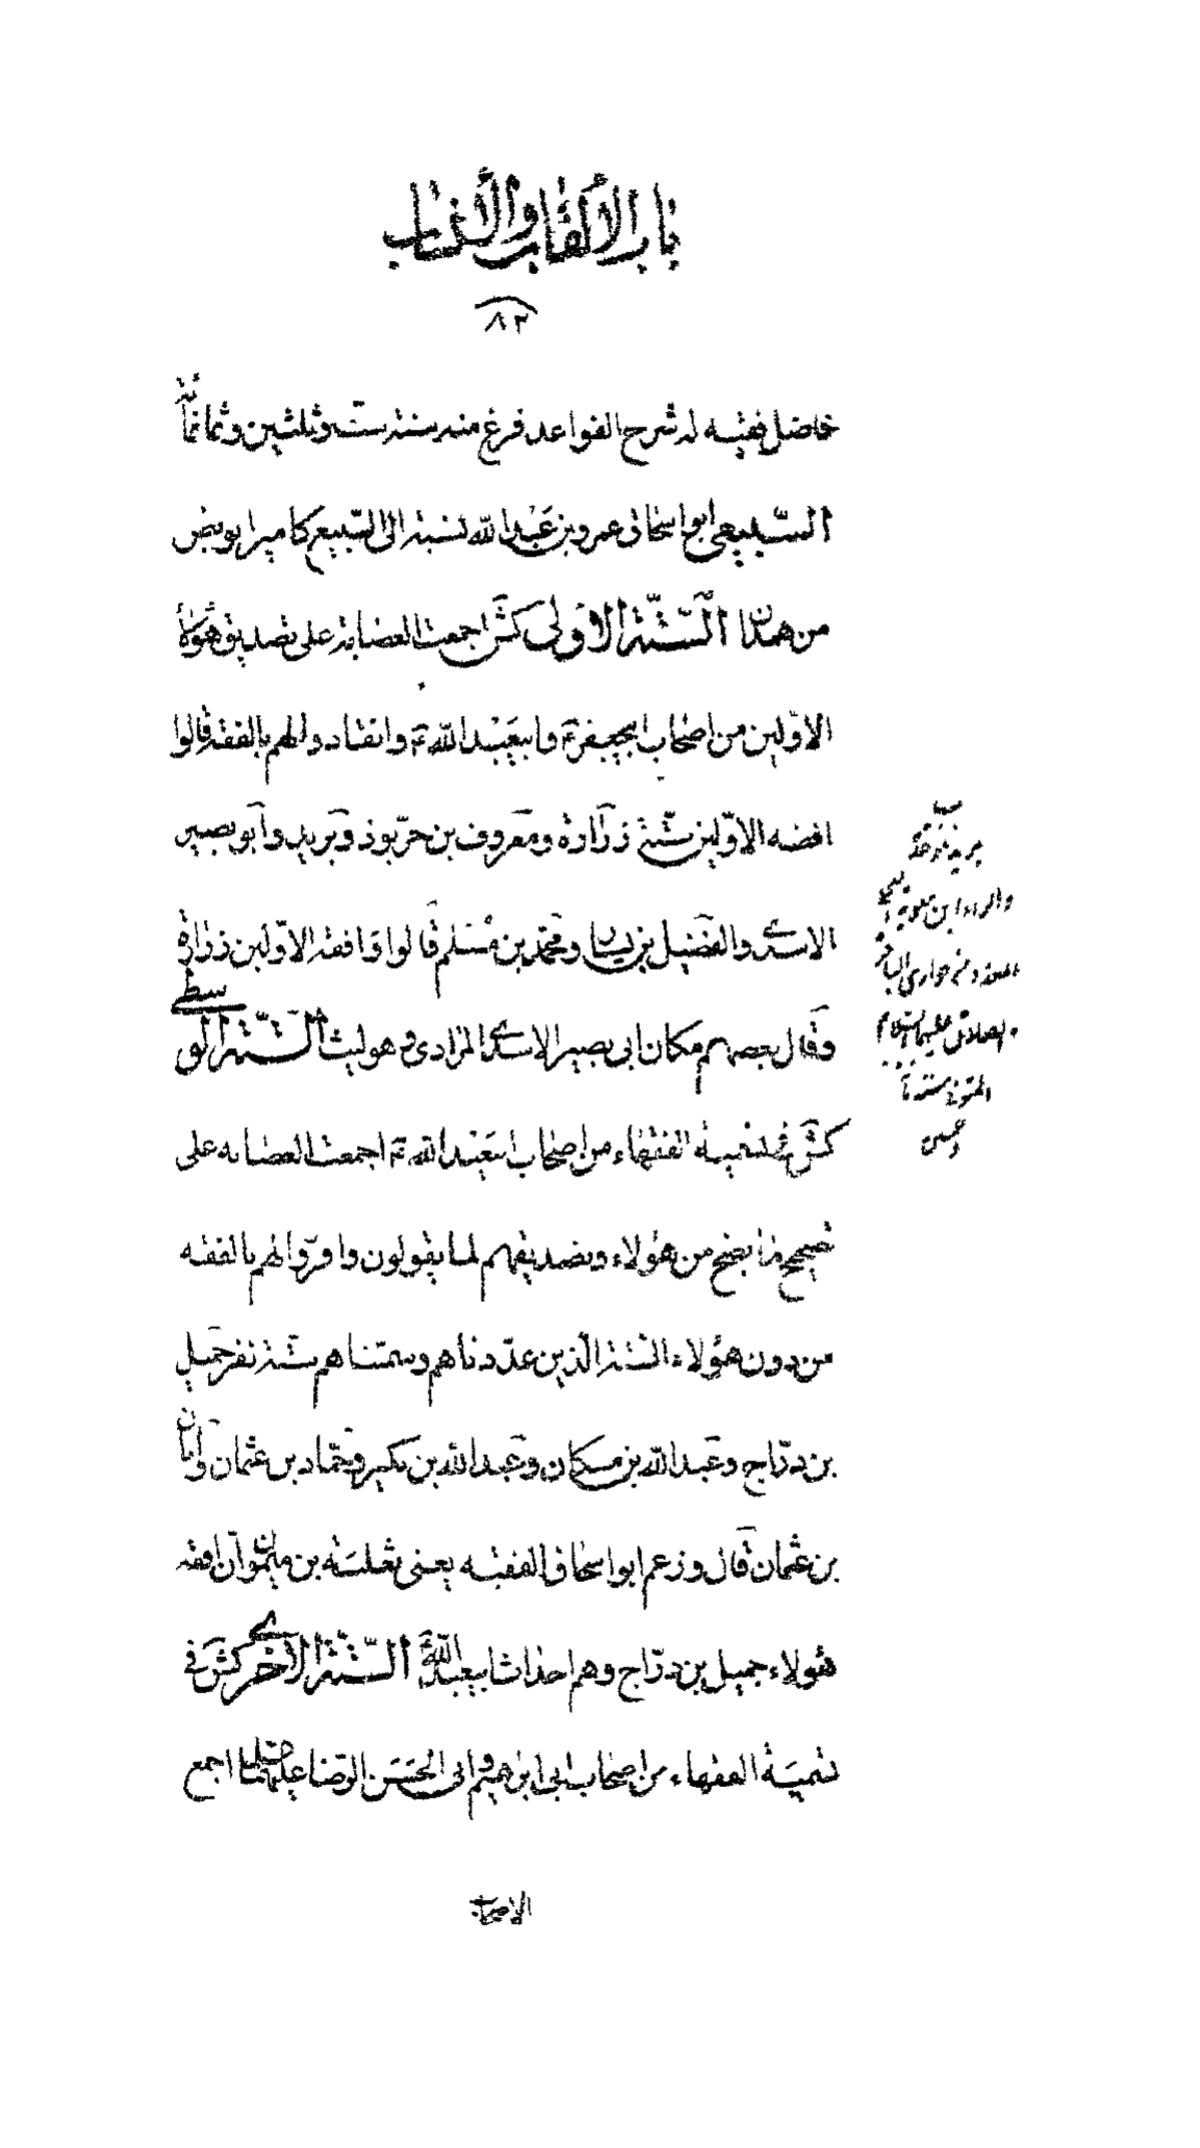 باب الألقاب والأنساب
٨٣
فاضل فقيه له شرح القواعد فرغ منه سنة ست وثلثين وثمانمأة
السّبيعي ابو اسحاق عمرو بن عَبْد الله نسبة الى السّبيع كامير ابو بطن
من همدان السّتّة الاولى كش اجمعت العصابة على تصديق هؤلاء
الاوّلين من اصحاب ابيجعفر ع وابيعَبْد الله ع وانقادوا لهم بالفقه قالوا
افقه الاوّلين ستّة زرارة ومعروف بن خرّبوذ وبريد وابو بصير
الاسدى والفضيل بن يسار ومحمّد بن مُسْلم قالوا وافقه الاوّلين زرارة
وقال بعضهم مكان ابى بصير الاسدى المرادى وهو ليث السّتّة الوسطى
كش فى تسمية الفقهاء من اصحاب ابيعَبْد الله ع اجمعت العصابه على
تصحيح ما يصح من هؤلاء وتصديقهم لما يقولون واقرّوا لهم بالفقه
من دون هؤلاء الستّة الّذين عدّدناهم وسمّيناهم ستّة نفر جميل
بن درّاج وعبد الله بن مسكان وعبد الله بن بكير وحمّاد بن عثمان وابان
بن عثمان قال وزعم ابو اسحاق الفقيه يعنى ثعلبة بن ميمون ان افقه
هؤلاء جميل بن درّاج وهم احداث ابيعبد الله ع السّتّة الاخرى كش فى
تسمية الفقهاء من اصحاب ابى ابراهيم وابى الحسَن الرّضا عليهما اجمع
بريد
والراء ابن معوية
ومن حوارى الباقر
والصادق عليهما السّلام
المتوفى سنة
الاصحاب